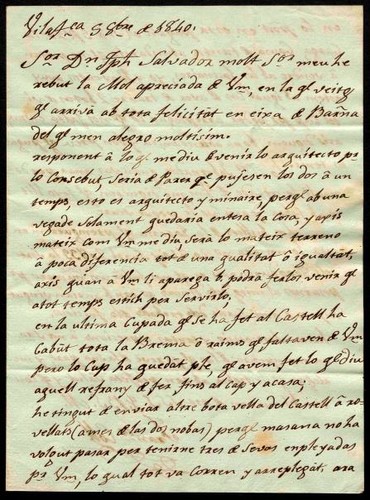 Vilaf.ca 5 8bre de 1840.
Sor. Dn. Jph. Salvador molt Sor. meu he
rebut la Mol apreciada de Vm, en la ql. veitg
ql. arrivà ab tota felicitat en eixa de Barña
del ql. men alegro moltisim.
responent â lo ql. me diu de venir lo arquitecto pr.
lo Consebut, Seria de Parer ql. pujesen los dos â un
temps, esto es arquitecto y minaire, perql. ab una
vegade solament quedaria entera la Cosa, y axis
mateix com Vm me diu, sera lo mateix terreno
â poca diferencia tot de una qualitat ô igualtat,
axis quan â Vm li aparega t. podrà ferlos venir ql.
atot temps estich per servirlo.
en la ultima Cupada ql. se ha fet al Castell ha
Cabut tota la Brema ô raims ql. faltaven de Vm
pero lo Cup ha quedat ple, ql. avem fet lo ql. diu
aquell refrany de fer fins al Cap y acasa;
he tingut de enviar altre bota vella del Castell â ro-
vellats (ames de las dos nobas) perql. masana no ha
volgut pasar per tenirne tres de sevas enpleyadas
pr. Vm, lo qual tot va Corren y arreplegat, ara